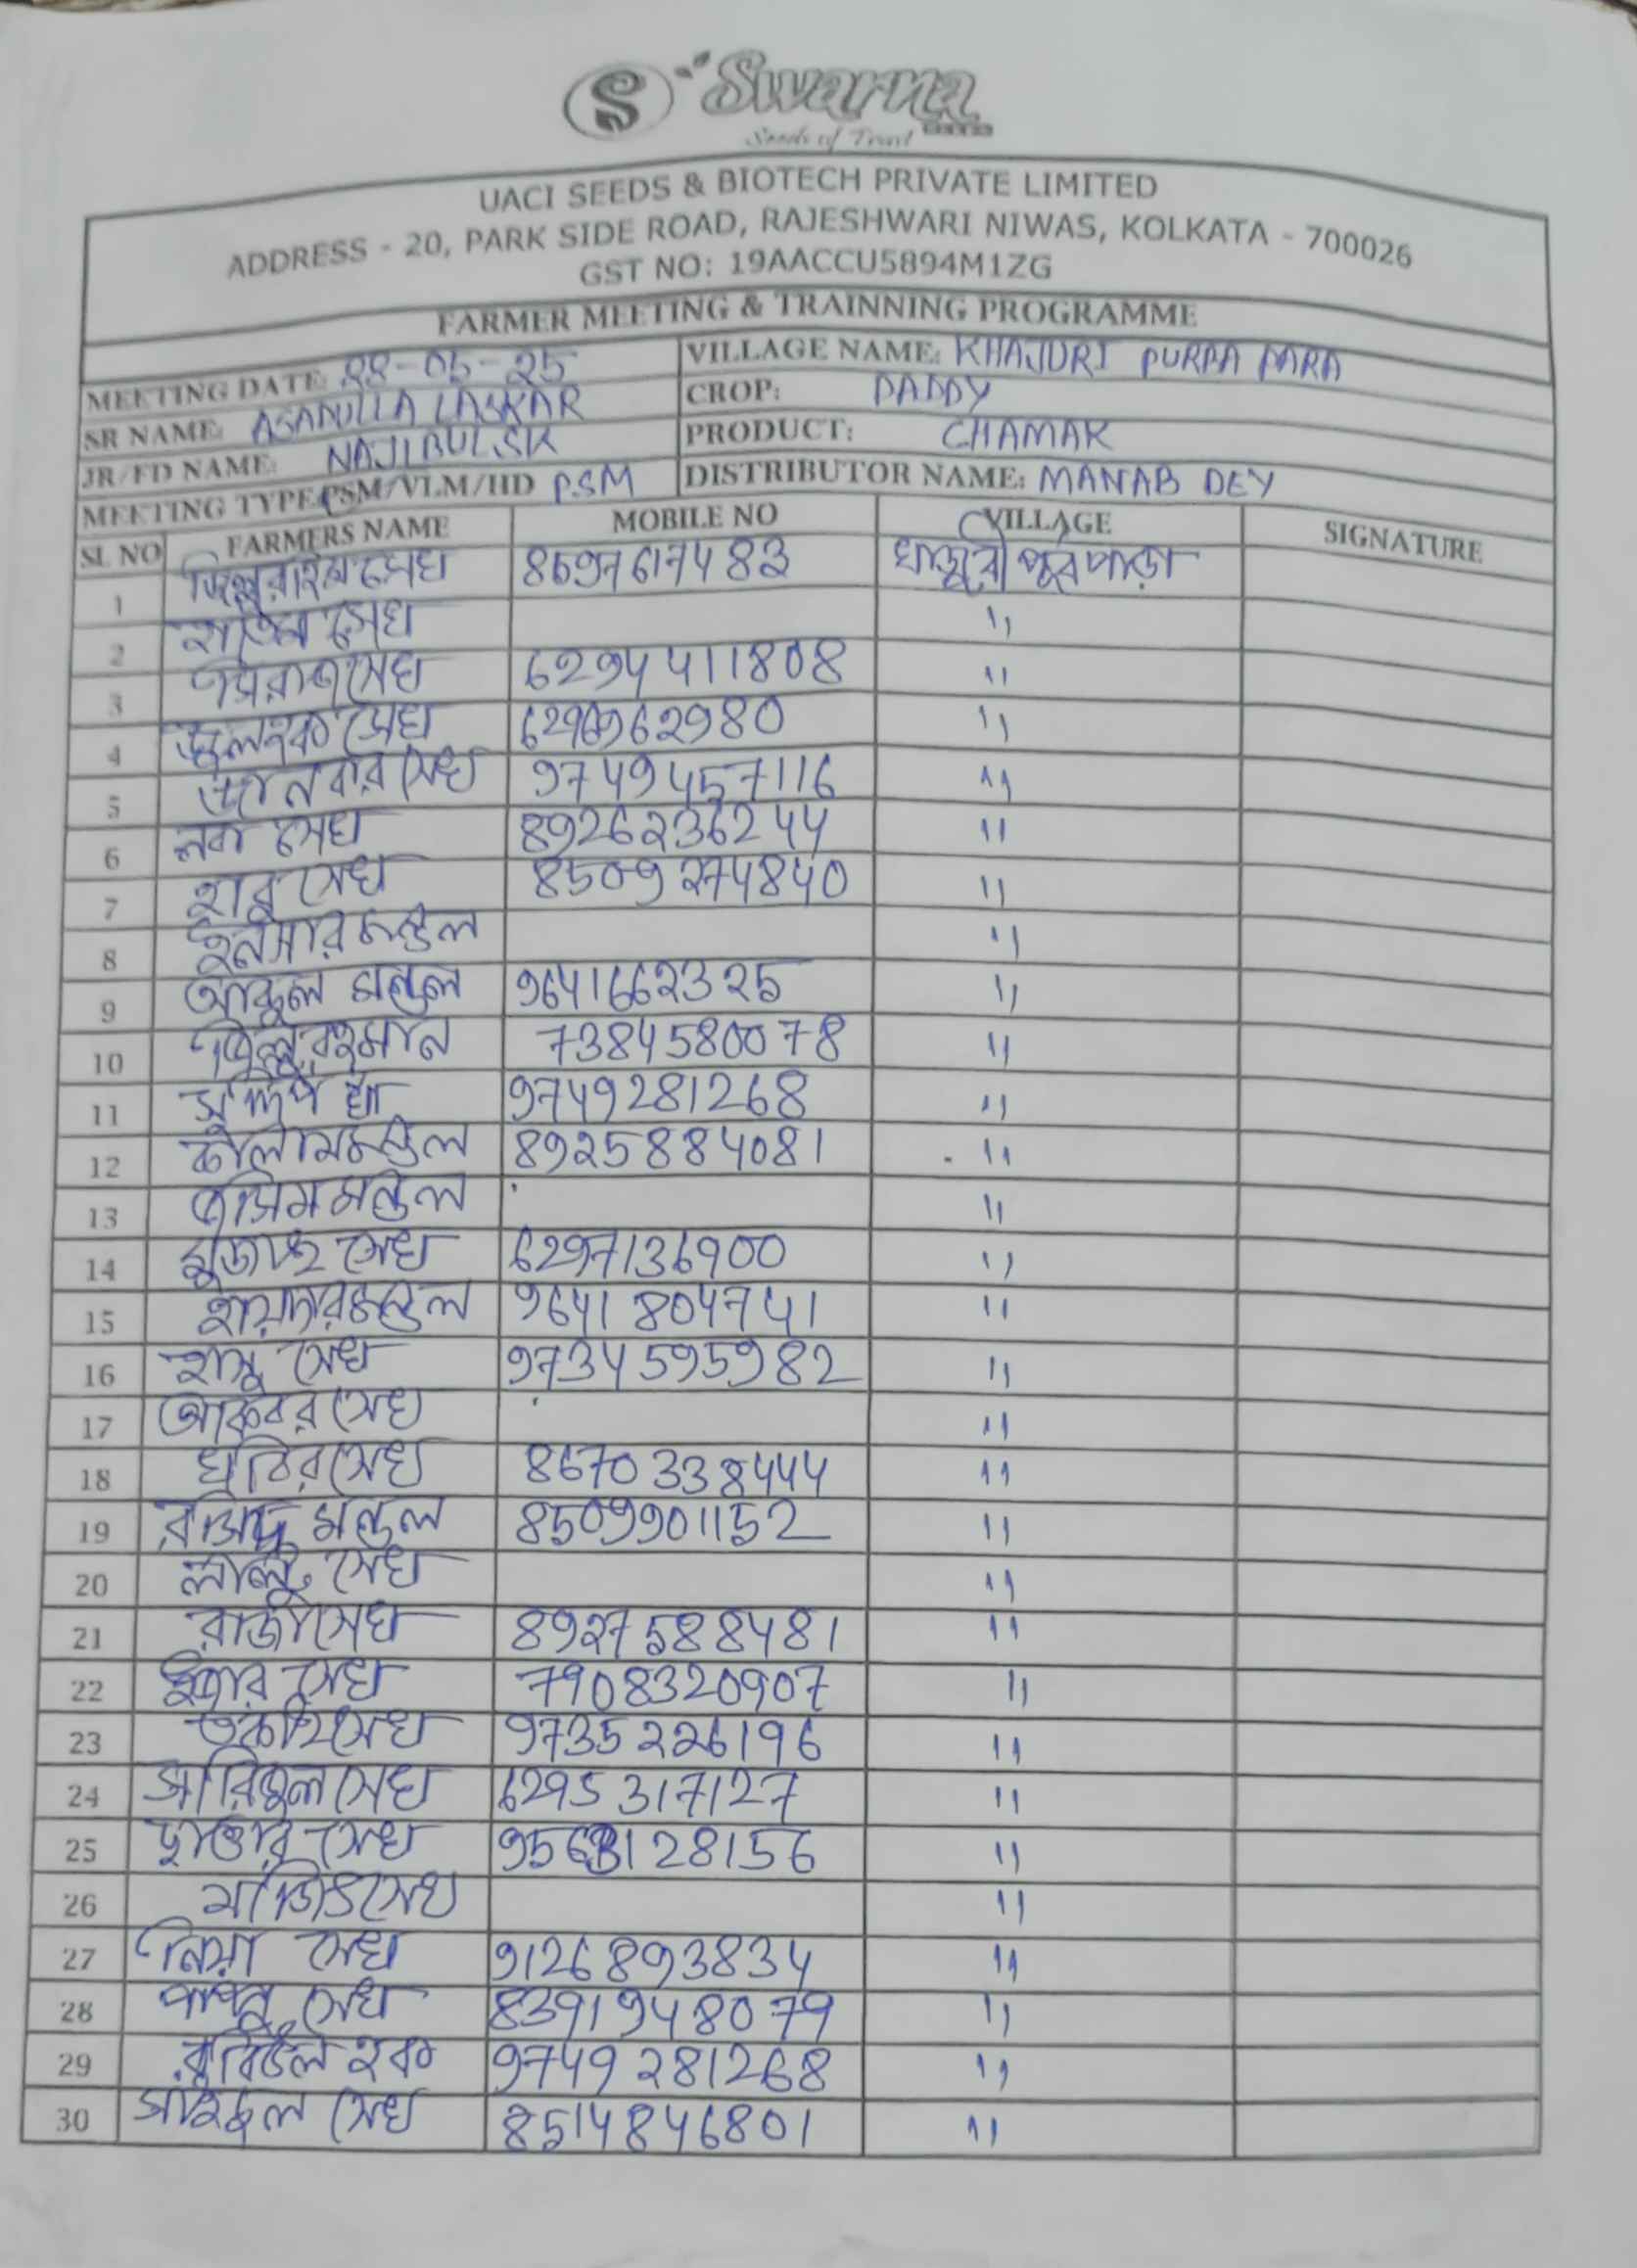 Swarna
Seeds of Trust
UACI SEEDS & BIOTECH PRIVATE LIMITED
ADDRESS - 20, PARK SIDE ROAD, RAJESHWARI NIWAS, KOLKATA - 700026
GST NO: 19AACCU5894M1ZG
FARMER MEETING & TRAINNING PROGRAMME
MEETING DATE: 28-05-25 VILLAGE NAME: KHAJURI PURPA PARA
SR NAME: ASANULLA LASKAR CROP: PADDY
JR/FD NAME: NAJIBUL SK PRODUCT: CHAMAK
MEETING TYPE PSM/VLM/HD PSM DISTRIBUTOR NAME: MANAB DEY
SL NO FARMERS NAME MOBILE NO VILLAGE SIGNATURE
1 সেখ 8597617483 খাজুরী পূর্বপাড়া
2 সেখ 11
3 সিরাজ সেখ 6294411808 11
4 সেখ 6296962980 11
5 সেখ 9749457116 11
6 সেখ 8926236244 11
7 হাবু সেখ 8509274840 11
8 মন্ডল 11
9 মন্ডল 9641662325 11
10 7384580078 11
11 খাঁ 9749281268 11
12 কালাম মন্ডল 8925884081 11
13 জসিম মন্ডল 11
14 সেখ 6297136900 11
15 মন্ডল 9641804741 11
16 হাসু সেখ 9734595982 11
17 আকবর সেখ 11
18 সেখ 8670338444 11
19 মন্ডল 8509901152 11
20 লালু সেখ 11
21 সেখ 8927588481 11
22 সেখ 7908320907 11
23 সেখ 9735226196 11
24 সারিফুল সেখ 6295317127 11
25 সেখ 9563128156 11
26 সেখ 11
27 মিয়া সেখ 9126893834 11
28 সেখ 8391948079 11
29 হক 9749281268 11
30 সাইফুল সেখ 8514846801 11